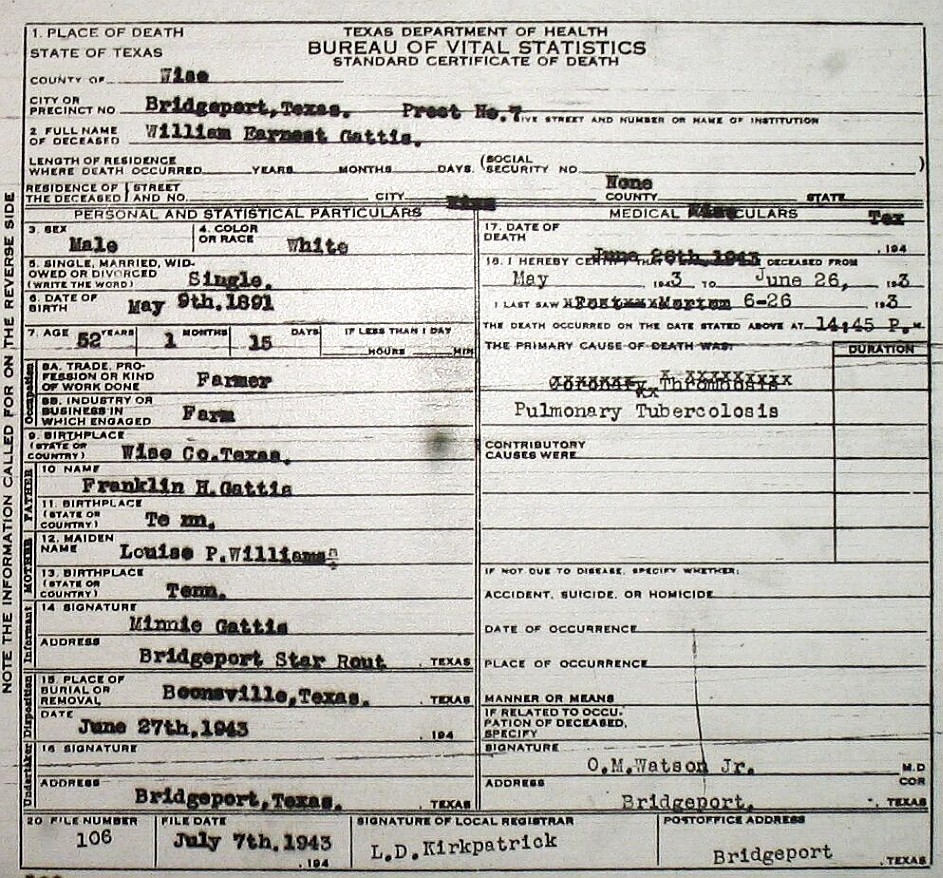 NOTE THE INFORMATION CALLED FOR ON THE REVERSE SIDE
TEXAS DEPARTMENT OF HEALTH
BUREAU OF VITAL STATISTICS
STANDARD CERTIFICATE OF DEATH
1. PLACE OF DEATH
STATE OF TEXAS
COUNTY OF Wise
CITY OR PRECINCT NO. Bridgeport,Texas. Prect No.7 GIVE STREET AND NUMBER OR NAME OF INSTITUTION
2. FULL NAME OF DECEASED William Earnest Gattis.
LENGTH OF RESIDENCE WHERE DEATH OCCURRED YEARS MONTHS DAYS. (SOCIAL SECURITY NO. None )
RESIDENCE OF THE DECEASED STREET AND NO. CITY COUNTY Wise STATE Tex
PERSONAL AND STATISTICAL PARTICULARS
3. SEX Male
4. COLOR OR RACE White
5. SINGLE, MARRIED, WIDOWED OR DIVORCED (WRITE THE WORD) Single.
6. DATE OF BIRTH May 9th.1891
7. AGE 52 YEARS 1 MONTHS 15 DAYS IF LESS THAN 1 DAY HOURS MIN
Occupation
8A. TRADE, PROFESSION OR KIND OF WORK DONE Farmer
8B. INDUSTRY OR BUSINESS IN WHICH ENGAGED Farm
9. BIRTHPLACE (STATE OR COUNTRY) Wise Co.Texas.
FATHER
10 NAME Franklin H.Gattis
11. BIRTHPLACE (STATE OR COUNTRY) Te nn.
MOTHER
12. MAIDEN NAME Louise P.Williams
13. BIRTHPLACE (STATE OR COUNTRY) Tenn.
Informant
14 SIGNATURE Minnie Gattis
ADDRESS Bridgeport Star Rout , TEXAS
Disposition
15. PLACE OF BURIAL OR REMOVAL Boonsville,Texas. , TEXAS
DATE June 27th.1943 , 194
Undertaker
16 SIGNATURE
ADDRESS Bridgeport,Texas. , TEXAS
MEDICAL PARTICULARS
17. DATE OF DEATH June 26th.1943 , 194
18. I HEREBY CERTIFY THAT I ATTENDED THE DECEASED FROM
May 1943 TO June 26, 193
I LAST SAW Post Mortem 6-26 193
THE DEATH OCCURRED ON THE DATE STATED ABOVE AT 14:45 P. M.
THE PRIMARY CAUSE OF DEATH WAS: DURATION
Coronary Thrombosis
Pulmonary Tubercolosis
CONTRIBUTORY CAUSES WERE
IF NOT DUE TO DISEASE, SPECIFY WHETHER:
ACCIDENT, SUICIDE, OR HOMICIDE
DATE OF OCCURRENCE
PLACE OF OCCURRENCE
MANNER OR MEANS
IF RELATED TO OCCUPATION OF DECEASED, SPECIFY
SIGNATURE O.M.Watson Jr. M.D COR
ADDRESS Bridgeport. , TEXAS
20 FILE NUMBER 106
FILE DATE July 7th.1943 , 194
SIGNATURE OF LOCAL REGISTRAR L.D.Kirkpatrick
POSTOFFICE ADDRESS Bridgeport , TEXAS